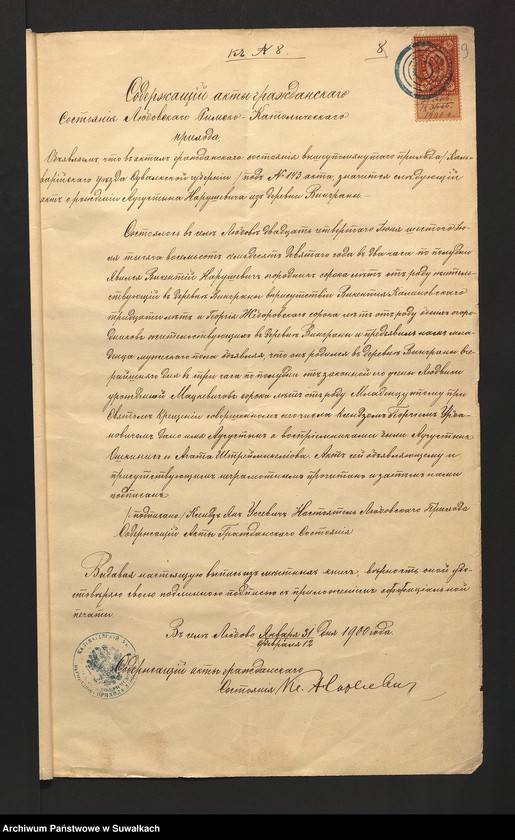 къ № 8.
8
9
Содержащій акты гражданскаго
Состоянія Людовскаго Римско-Католическаго
прихода
Объявляю, что въ актахъ гражданскаго состоянія вышеупомянутаго прихода /Каль-
варійскаго уѣзда Сувалкской губерніи/ подъ № 193 акта, значится слѣдующій
актъ о рожденіи Августына Нарушевича изъ деревни Винграны.-
Состоялось въ селѣ Людовъ двадцать четвертаго Іюня шестого Ію-
ля тысяча восемьсотъ семьдесятъ девятаго года въ два часа по полудни
Явился Викентій Нарушевичъ огородникъ сорока лѣтъ отъ роду житель-
ствующій въ деревнѣ Винграны въ присутствіи Викентія Калиновскаго
тридцати лѣтъ и Георгія Жёдоровскаго сорока лѣтъ отъ роду обоихъ огоро-
дниковъ жительствующихъ въ деревнѣ Винграны и предъявилъ намъ мла-
денца мужескаго пола объявляя, что онъ родился въ деревнѣ Винграны вче-
рашняго дня въ три часа по полудни отъ законной его жены Людвики
урожденной Мацкевичовъ сорока лѣтъ отъ роду Младенцу тому при
Святомъ Крещеніи совершенномъ его числа Ксендзомъ Георгіемъ Урба-
новичемъ дано имя Августынъ а воспріемниками были Августынъ
и Агата
Актъ сей объявляющему и
присутствующимъ неграмотнымъ прочитанъ и затѣмъ нами
подписанъ
/-подписано/ Ксендзъ Янъ Усевичъ Настоятель Людовскаго Прихода
Содержащій Акты Гражданскаго Состоянія
Выдавая настоящую выпись изъ метныхъ книгъ, вѣрность оной удо-
стовѣряю своею подлинною подписью съ приложеніемъ оффиціальной
печати.
Въ селѣ Людовѣ Января 31 дня 1900 года.
Февраля 12
Содержащій акты гражданскаго
Состоянія Кс.
Archiwum Państwowe w Suwałkach